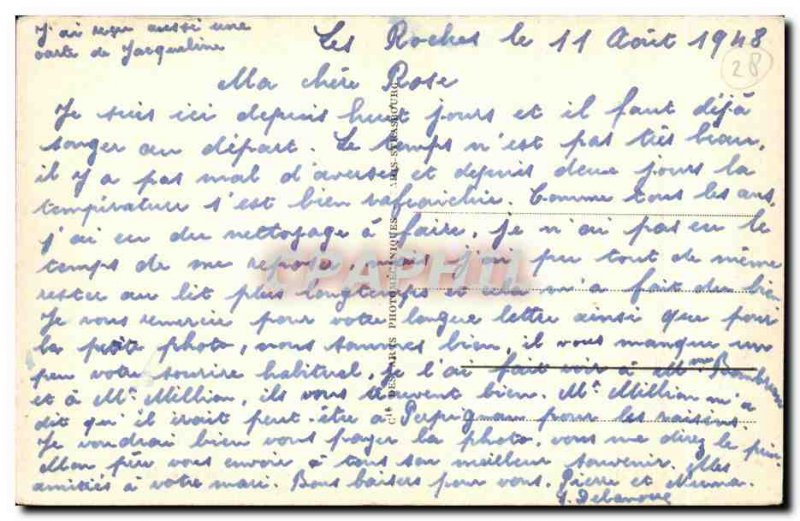 J'ai reçu aussi une
carte de Jacqueline
Les Roches le 11 Août 1948
28
Ma chère Rose
Je suis ici depuis huit jours et il faut déjà
songer au départ. Le temps n'est pas très beau,
il y a pas mal d'averses et depuis deux jours la
température s'est bien rafraichie. Comme tous les ans,
j'ai eu du nettoyage à faire, je n'ai pas eu le
temps de me reposer, mais j'ai pu tout de même
rester au lit plus longtemps et cela m'a fait du bien
Je vous remercie pour votre longue lettre ainsi que pour
la petite photo, nous sommes bien, il vous manque un
peu votre sourire habituel, je l'ai fait voir à Mme
et à Mr Millian, ils vous trouvent bien. Mr Millian m'a
dit qu'il irait peut-être à Perpignan pour les raisins
Je voudrai bien vous payer la photo, vous me direz le prix.
Mon père vous envoie à tous son meilleur souvenir. Mes
amitiés à votre mari. Bons baisers pour vous, Pierre et
CPAPHIL
CIE DES ARTS PHOTOMÉCANIQUES
STRASBOURG